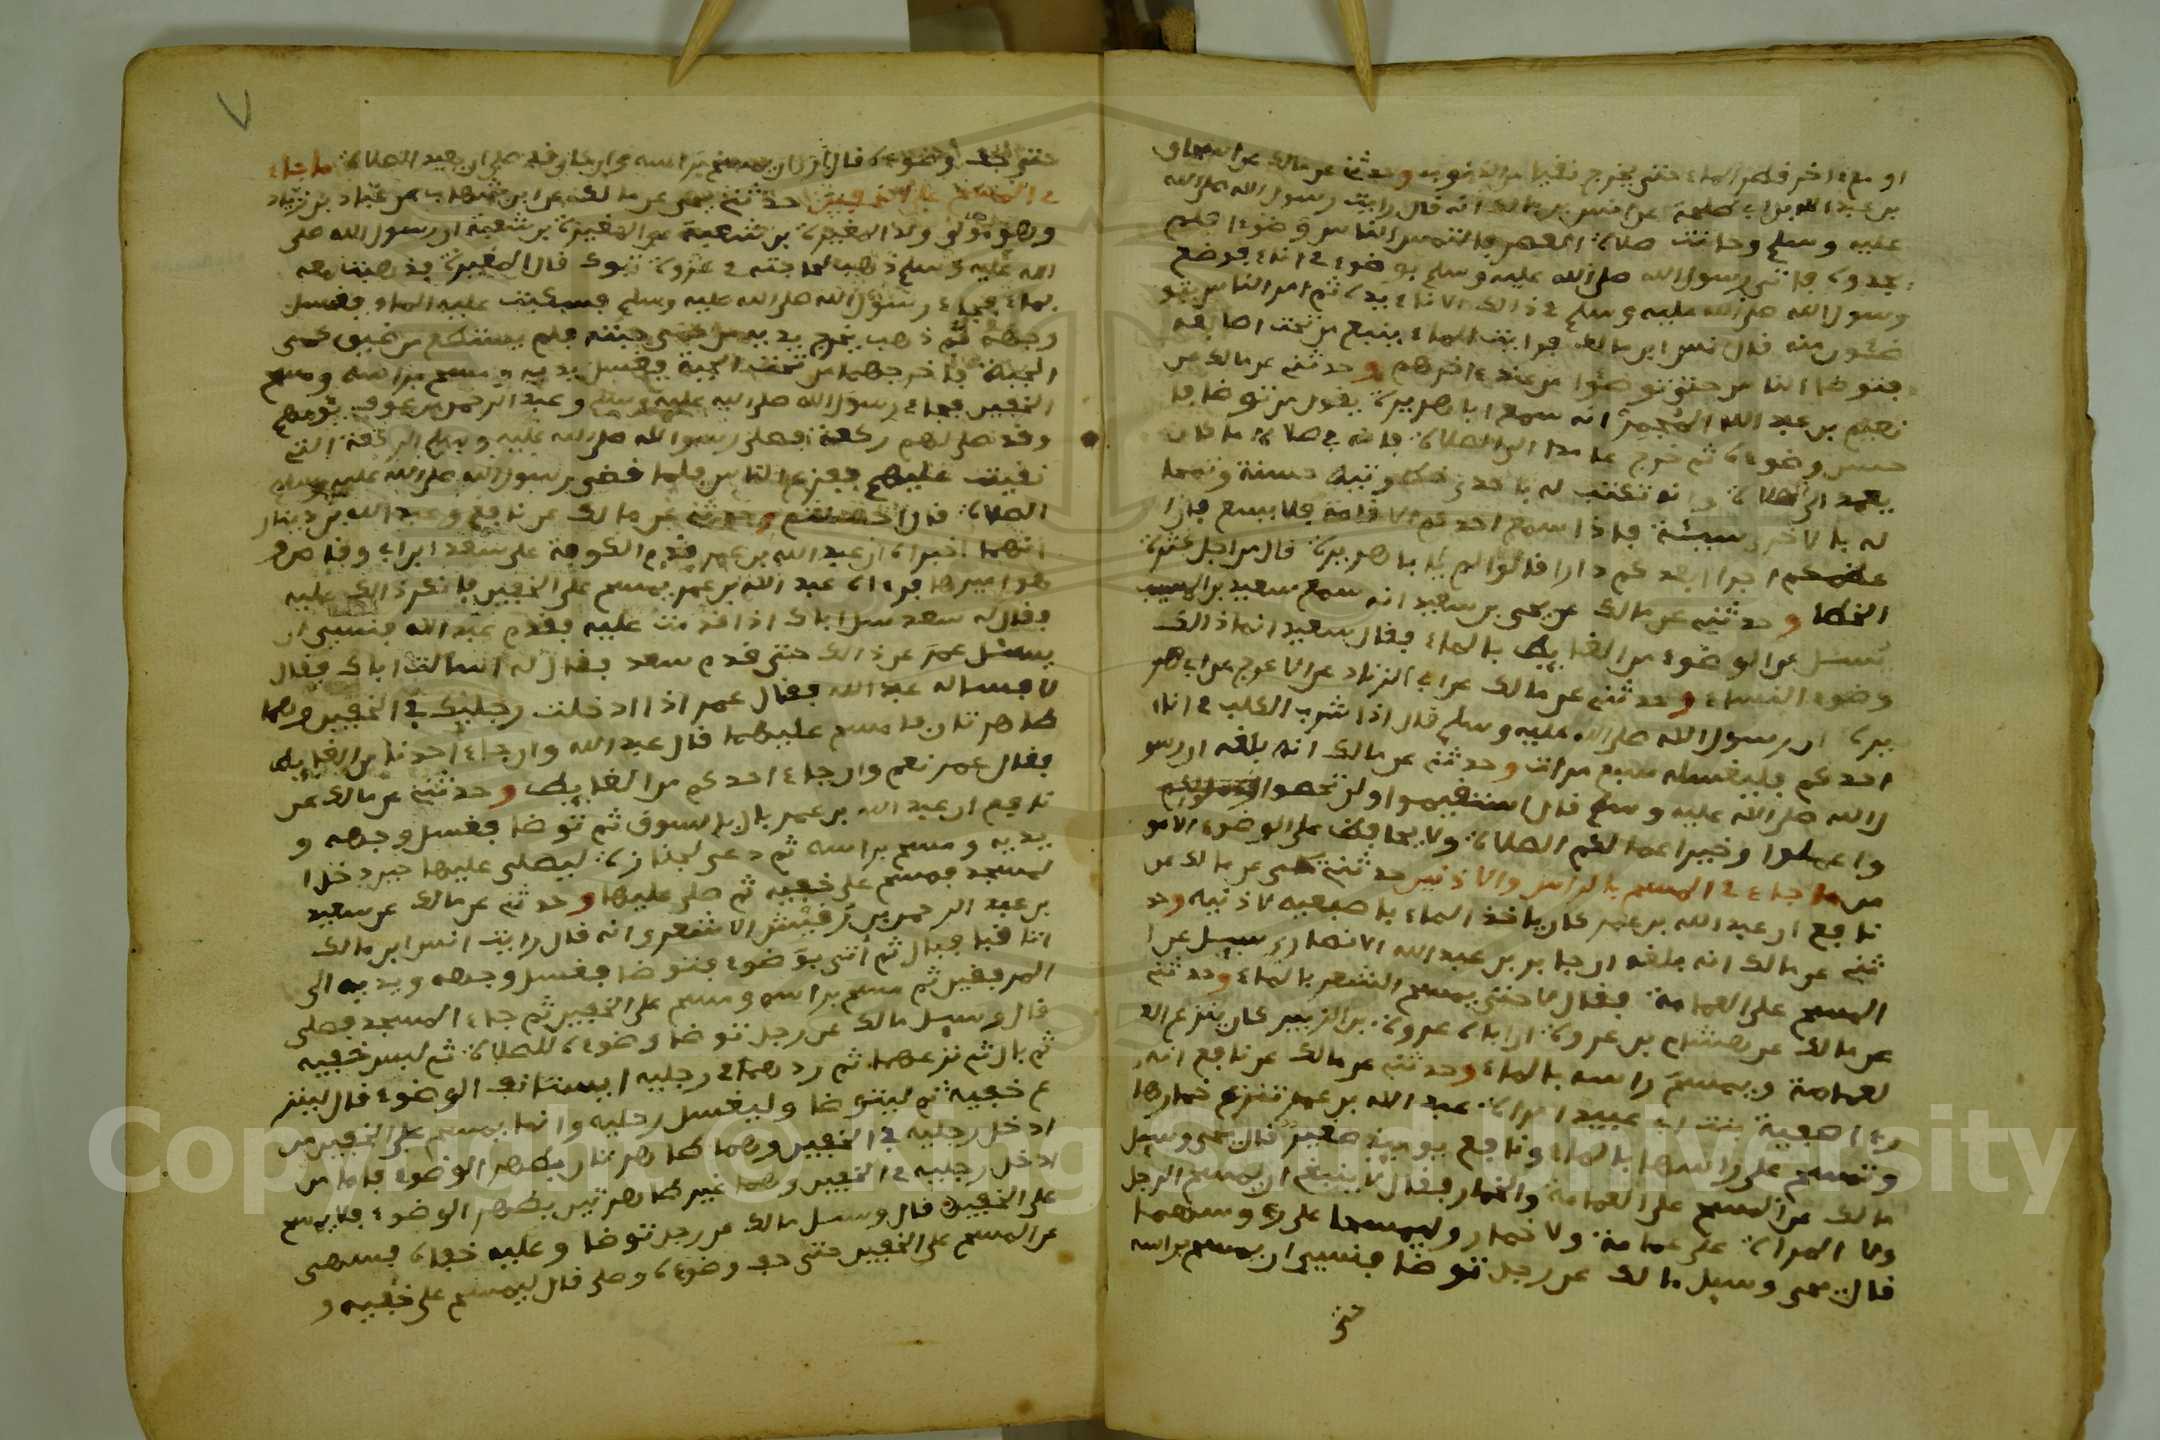 او مع اخر قطر الماء حتى يخرج نقيا من الذنوب وحدثني عن مالك عن اسحاق
بن عبد الله بن ابي طلحة عن انس بن مالك انه قال رايت رسول الله صلى الله
عليه وسلم وحانت صلاة العصر فالتمس الناس وضوءا فلم
يجدوه فاتي رسول الله صلى الله عليه وسلم بوضوء في اناء فوضع
رسول الله صلى الله عليه وسلم في ذالك الاناء يده ثم امر الناس يتو
ضئون منه قال انس ابن مالك فرايت الماء ينبع من تحت اصابعه
فتوضا الناس حتى توضئوا من عند ءاخرهم وحدثني عن مالك عن
نعيم بن عبد الله المجمر انه سمع ابا هريرة يقول من توضا فا
حسن وضوءه ثم خرج عامدا الى الصلاة فانه في صلاة ما كان
يعمد الى الصلاة وانه تكتب له باحدى خطوتيه حسنة وتمحا
له بالاخرى سيئة فاذا سمع احدكم الاقامة فلا يسع فان ا
عظمكم اجرا ابعدكم دارا قالوا لم يا ابا هريرة قال من اجل كثرة
الخطا وحدثني عن مالك عن يحيى بن سعيد انه سمع سعيد بن المسيب
يسئل عن الوضوء من الغايط بالماء فقال سعيد انما ذالك
وضوء النساء وحدثني عن مالك عن ابي الزناد عن الاعرج عن ابي هر
يرة ان رسول الله صلى الله عليه وسلم قال اذا شرب الكلب في اناء
احدكم فليغسله سبع مرات وحدثني عن مالك انه بلغه ان رسو
ل الله صلى الله عليه وسلم قال استقيموا ولن تحصوا
واعملوا وخير اعمالكم الصلاة ولا يحافظ على الوضوء الا مو
من ما جاء في المسح بالراس والاذنين حدثني يحيى عن مالك عن
نافع ان عبد الله بن عمر كان ياخذ الماء باصبعيه لاذنيه وحد
ثني عن مالك انه بلغه ان جابر بن عبد الله الانصاري سيل عن ا
المسح على العمامة فقال لا حتى يمسح الشعر بالماء وحدثني
عن مالك عن هشام بن عروة ان اباه عروة بن الزبير كان ينزع ال
لعمامة ويمسح راسه بالماء وحدثني عن مالك عن نافع انه
را صفية بنت ابي عبيد امراة عبد الله بن عمر تنزع خمارها
وتمسح على راسها بالماء ونافع يوميذ صغير قال يحيى وسيل
مالك عن المسح على العمامة والخمار فقال لا ينبغي ان يمسح الرجل
ولا المراة على عمامة ولا خمار وليمسحا على رءوسهما
قال يحيى وسيل مالك عن رجل توضا فنسي ان يمسح براسه
حتى
٧
حتى جف وضوءه قال ارى ان يمسح براسه وان كان قد صلى ان يعيد الصلاة ما جاء
في المسح على الخفين حدثني يحيى عن مالك عن ابن شهاب عن عباد بن زياد
وهو من ولد المغيرة بن شعبة عن المغيرة بن شعبة ان رسول الله صلى
الله عليه وسلم ذهب لحاجته في غزوة تبوك قال المغيرة فذهبت معه
بماء فجاء رسول الله صلى الله عليه وسلم فسكبت عليه الماء فغسل
وجهه ثم ذهب يخرج يديه من كمي جبته فلم يستطع من ضيق كمي
الجبة فاخرجهما من تحت الجبة فغسل يديه ومسح براسه ومسح
الخفين فجاء رسول الله صلى الله عليه وسلم وعبد الرحمن بن عوف يؤمهم
وقد صلى لهم ركعة فصلى رسول الله صلى الله عليه وسلم الركعة التي
بقيت عليهم ففزع الناس فلما قضى رسول الله صلى الله عليه وسلم
الصلاة قال احسنتم وحدثني عن مالك عن نافع وعبد الله بن دينار
انهما اخبراه ان عبد الله بن عمر قدم الكوفة على سعد ابن ابي وقاص و
هو اميرها فرءاه عبد الله بن عمر يمسح على الخفين فانكر ذالك عليه
فقال له سعد سل اباك اذا قدمت عليه فقدم عبد الله فنسي ان
يسئل عمر عن ذالك حتى قدم سعد فقال له اسالت اباك فقال
لا فساله عبد الله فقال عمر اذا ادخلت رجليك في الخفين وهما
طاهرتان فامسح عليهما قال عبد الله وان جاء احدنا من الغايط
فقال عمر نعم وان جاء احدكم من الغايط وحدثني عن مالك عن
نافع ان عبد الله بن عمر بال بالسوق ثم توضا فغسل وجهه و
يديه ومسح براسه ثم دعي لجنازة ليصلي عليها حين دخل ا
لمسجد فمسح على خفيه ثم صلى عليها وحدثني عن مالك عن سعيد
بن عبد الرحمن بن رقيش الاشعري انه قال رايت انس ابن مالك
اتا قبا فبال ثم اتي بوضوء فتوضا فغسل وجهه ويديه الى
المرفقين ثم مسح براسه ومسح على الخفين ثم جاء المسجد فصلى
قال وسيل مالك عن رجل توضا وضوءه للصلاة ثم لبس خفيه
ثم بال ثم نزعهما ثم ردهما في رجليه ايستانف الوضوء قال لينز
ع خفيه ثم ليتوضا وليغسل رجليه وانما يمسح على الخفين من
ادخل رجليه في الخفين وهما طاهرتان بطهر الوضوء فاما من
ادخل رجليه في الخفين وهما غير طاهرتين بطهر الوضوء فلا يمسح
على الخفين قال وسيل مالك عن رجل توضا وعليه خفاه فسهى
عن المسح على الخفين حتى جف وضوءه وصلى قال ليمسح على خفيه و
Copyright © King Saud University